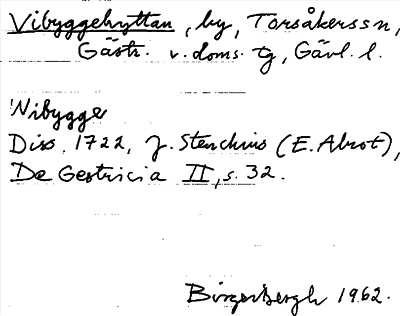 Vibyggehyttan, by, Torsåkers sn,
Gästr. v. doms. tg, Gävl. l.
Nibygge
Diss. 1722, J. Stenchius (E. Alrot),
De Gestricia II, s. 32.
Birger Bergh 1962.